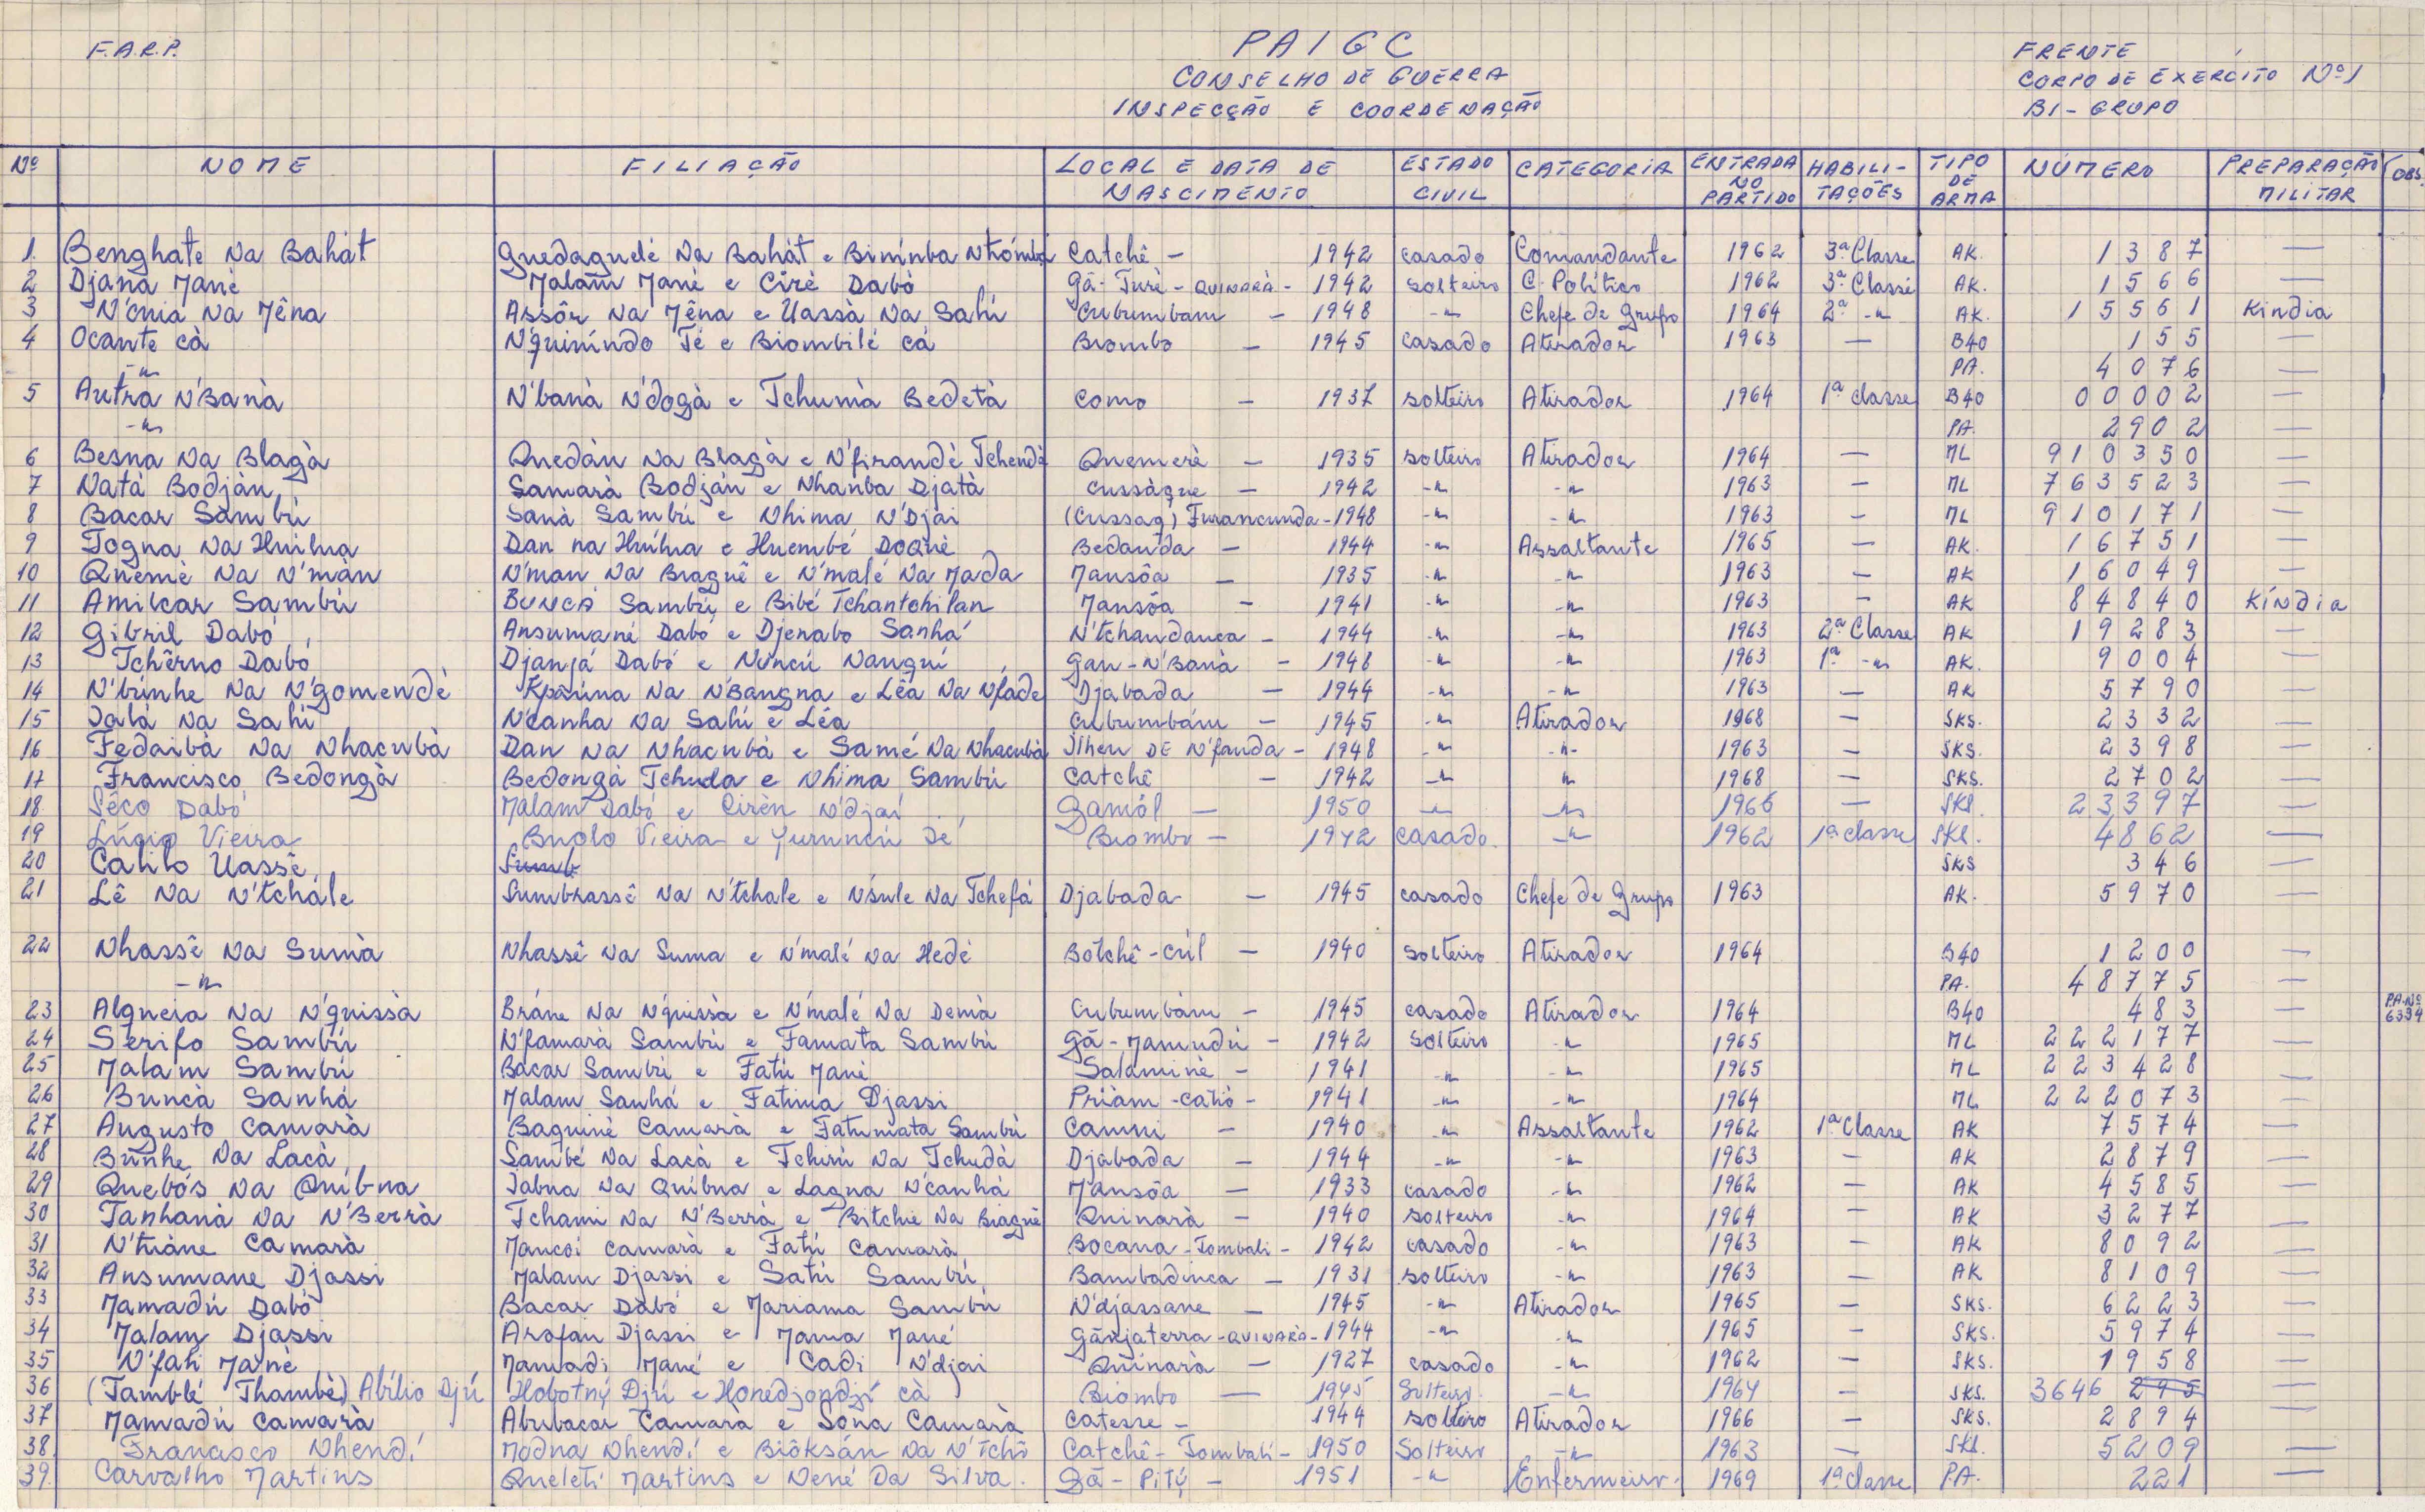 F.A.R.P.
PAIGC
CONSELHO DE GUERRA
INSPECÇÃO E COORDENAÇÃO
FRENTE
CORPO DE EXERCITO Nº 1
BI-GRUPO
Nº NOME FILIAÇÃO LOCAL E DATA DE NASCIMENTO ESTADO CIVIL CATEGORIA ENTRADA NO PARTIDO HABILITAÇÕES TIPO DE ARMA NÚMERO PREPARAÇÃO MILITAR OBS.
1. Benghate Na Bahát Quedaguelé Na Bahát e Binínba Nhómba Catchê - 1942 casado Comandante 1962 3ª Classe AK. 1387 —
2 Djana Mané Malam Mané e Ciré Dabó Gã-Turé - QUINARA - 1942 solteiro C. Político 1962 3ª Classe AK. 1566 —
3 N'onia Na Mêna Assôr Na Mêna e Uassà Na Sahi Cubumbam - 1948 -"- Chefe de Grupo 1964 2ª -"- AK. 15561 Kindia
4 Ocante cà N'quiníndo Té e Biombilé cá Biombo - 1945 casado Atirador 1963 — B40 155 —
-"- PA. 4076 —
5 Autra N'Banà N'banà N'dogà e Tchumà Bedetà Como - 1937 solteiro Atirador 1964 1ª classe B40 00002 —
-"- PA. 2902 —
6 Besna Na Blagà Quedàn Na Blagà e N'firandè Tchendà Quemerè - 1935 solteiro Atirador 1964 — ML 910350 —
7 Natà Bodjàn Samarà Bodján e Nhanba Djatà Cussàque - 1942 -"- -"- 1963 — ML 763523 —
8 Bacar Sambú Sanà Sambú e Nhima N'Djai (Cussaq) Furancunda - 1948 -"- -"- 1963 — ML 910171 —
9 Togna Na Huilna Dan na Huílna e Huembé Doqué Bedanda - 1944 -"- Assaltante 1965 — AK. 16751 —
10 Quemè Na N'màn N'man Na Braguê e N'malé Na Mada Mansôa - 1935 -"- -"- 1963 — AK 16049 —
11 Amilcar Sambú BUNCÁ Sambú e Bibé Tchantchilan Mansôa - 1941 -"- -"- 1963 — AK 84840 Kíndia
12 Gibril Dabó Ansumané Dabó e Djenabo Sanhá N'tchandanca - 1944 -"- -"- 1963 2ª Classe AK 19283 —
13 Tchêrno Dabó Djanjá Dabó e Nuncú Nanguí Gan-N'Banà - 1948 -"- -"- 1963 1ª -"- AK. 9004 —
14 N'búnhe Na N'gomendè Kpaúna Na N'Bangna e Lêa Na Nfade Djabada - 1944 -"- -"- 1963 — AK 5790 —
15 Jalá Na Sahi N'canha Na Sahi e Léa Cubumbám - 1945 -"- Atirador 1968 — SKS. 2332 —
16 Fedaibà Na Nhacubà Dan Na Nhacubà e Samé Na Nhacubà Ilheu DE N'fanda - 1948 -"- -"- 1963 — SKS. 2398 —
17 Francisco Bedongà Bedongà Tchuda e Nhima Sambú Catchê - 1942 -"- " 1968 — SKS. 2702 —
18. Sêco Dabó Malam Dabó e Cirèn N'djai Gamól - 1950 -"- -"- 1966 — SKS. 23397 —
19 Lúgio Vieira Buolo Vieira e Yuruncú Sé Biombo - 1942 casado. -"- 1962 1ª classe SKS. 4862 —
20 Calilo Uassê Sumb SKS 346 —
21 Lê Na N'tchále Sumbrassê Na N'tchale e N'sule Na Tchefá Djabada - 1945 casado Chefe de Grupo 1963 AK. 5970 —
22 Nhassê Na Sumà Nhassê Na Suma e N'malé Na Hedé Botchê-cúl - 1940 solteiro Atirador 1964 B40 1200 —
-"- PA. 48775 —
23 Algueia Na N'quissà Bráne Na N'quissà e N'malé Na Demà Cubumbám - 1945 casado Atirador 1964 B40 483 — P.A. Nº 6334
24 Serifo Sambú N'famarà Sambú e Famata Sambú Gã-Mamudú - 1942 solteiro -"- 1965 ML 222177 —
25 Malam Sambú Bacar Sambú e Fatú Mané Salaminè - 1941 -"- -"- 1965 ML 223428 —
26 Buncà Sanhá Malam Sanhá e Fatima Djassi Priàm-catió - 1941 -"- -"- 1964 ML 222073 —
27 Augusto Camarà Baguinè Camarà e Fatumata Sambú Camui - 1940 -" Assaltante 1962 1ª Classe AK 7574 —
28 Bunhe Na Lacà Sambé Na Lacà e Tchirú Na Tchudà Djabada - 1944 -"- -"- 1963 — AK 2879 —
29 Quebós Na Quibna Jabna Na Quíbna e Lagna N'canhá Mansôa - 1933 casado -"- 1962 — AK 4585 —
30 Tanhaná Na N'Berrà Tchami Na N'Berrà e Bitchie Na Biaguê Quinarà - 1940 solteiro -"- 1964 — AK 3277 —
31 N'tuàne Camarà Mancoi Camarà e Fatú Camarà Bocana - Tombali - 1942 casado -"- 1963 — AK 8092 —
32 Ansumane Djassi Malam Djassi e Satú Sambú Bambadinca - 1931 solteiro -"- 1963 — AK 8109 —
33 Mamadú Dabó Bacar Dabó e Mariama Sambú N'djassane - 1945 -"- Atirador 1965 — SKS. 6223 —
34 Malam Djassi Arafan Djassi e Mama Mané Gãnjaterra - QUINARA - 1944 -"- -"- 1965 — SKS. 5974 —
35 N'fali Manè Mamadi Mané e Cadi N'djai Quinarà - 1927 casado -"- 1962 — SKS. 1958 —
36 (Tamblé Thambè) Abílio Djú Hobotný Djú e Honedjondjí cà Biombo — 1945 Solteiro. -"- 1964 — SKS. 3646 295 —
37 Mamadú Camarà Abubacar Camarà e Sona Camarà Catesse - 1944 solteiro Atirador 1966 — SKS. 2894 —
38. Francisco Nhendí Modna Nhendí e Biôksán Na N'tchô Catchê - Tombalí - 1950 Solteiro -"- 1963 — SKS. 5209 —
39. Carvalho Martins Queleti Martins e Nené Da Silva. Gã-Pitý - 1951 -"- Enfermeiro. 1969 1ª classe P.A. 221 —